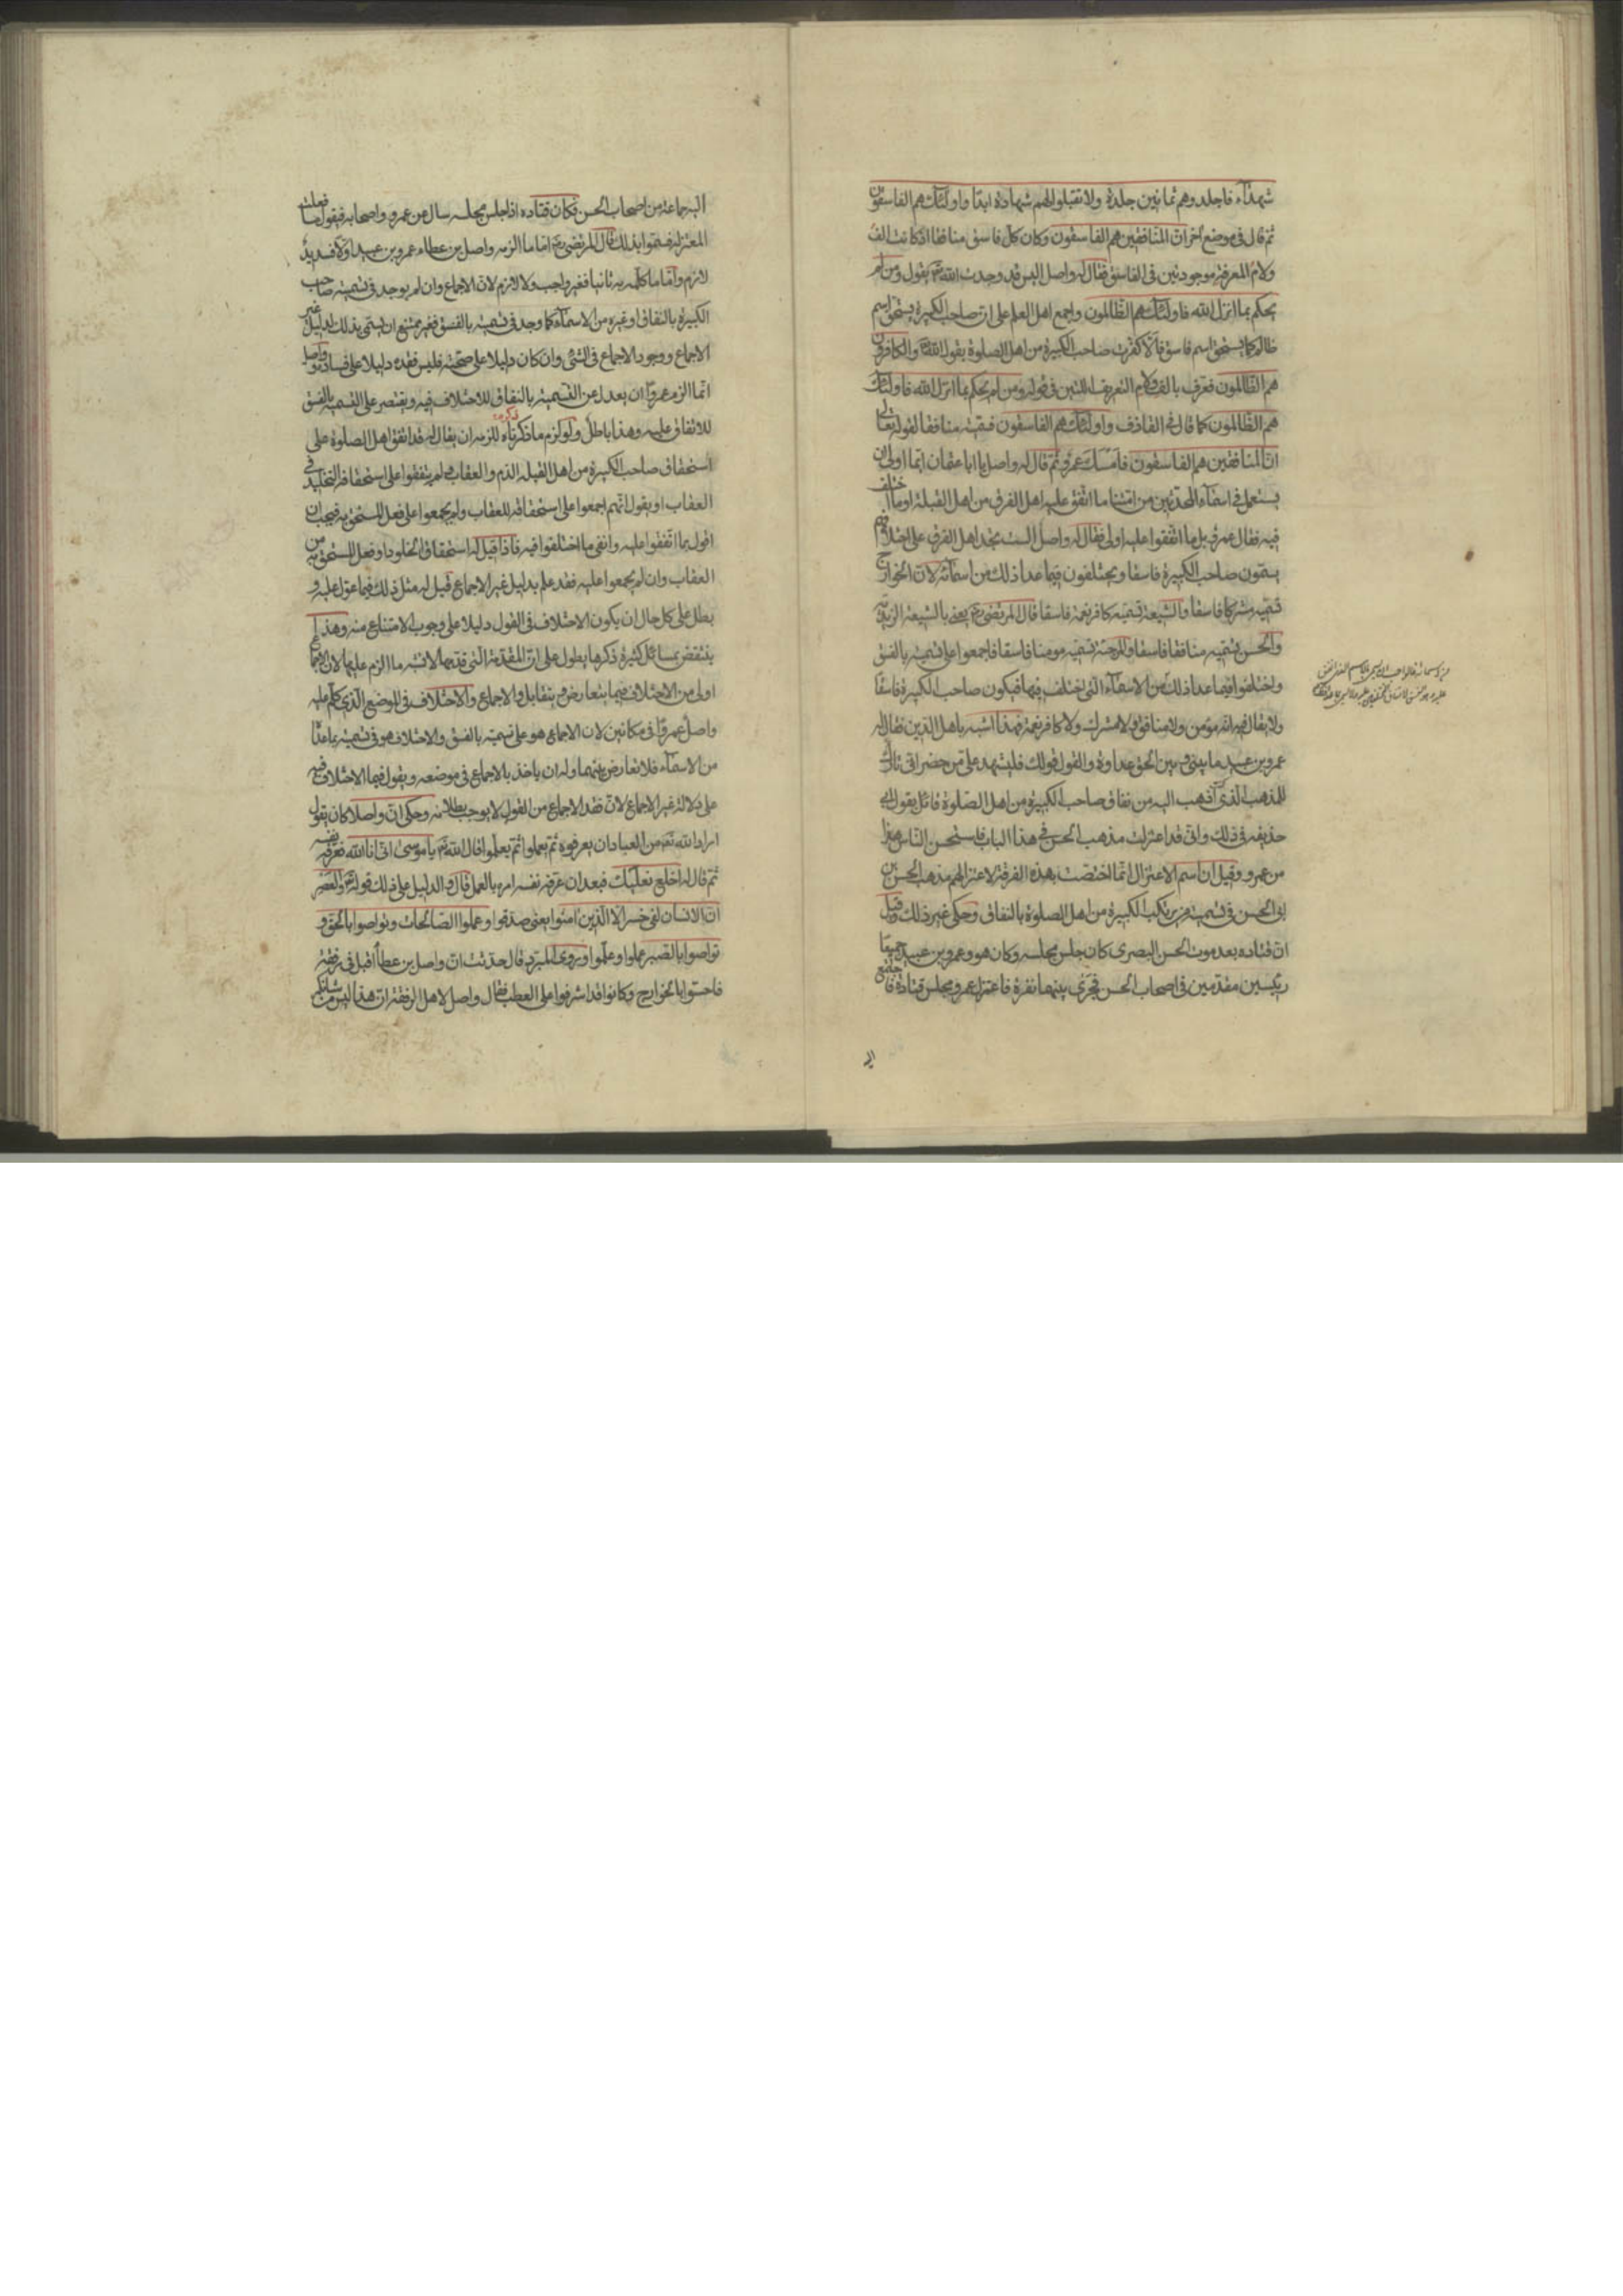 شهداء فاجلدوهم ثمانين جلدة ولا تقبلوا لهم شهادة ابدا واولئك هم الفاسقون
ثم قال في موضع آخر ان المنافقين هم الفاسقون وكان كل فاسق منافقا اذ كانت الف
ولام المعرفة موجودتين في الفاسق فقال له واصل اليس قد وجدت الله تع يقول ومن لم
يحكم بما انزل الله فاولئك هم الظالمون واجمع اهل العلم على ان صاحب الكبيرة يستحق اسم
ظالم كما يستحق اسم فاسق فالا كفرت صاحب الكبيرة من اهل الصلوة بقول الله تع والكافرون
هم الظالمون فعرف بالف ولام التعريف اللتين في قوله ومن لم يحكم بما انزل الله فاولئك
هم الظالمون كما قال في القاذف واولئك هم الفاسقون فسميته منافقا لقوله تعالى
ان المنافقين هم الفاسقون فامسك عمرو ثم قال له واصل يا ابا عثمان ايما اولى ان
يستعمل في اسماء المحدثين من امتنا ما اتفق عليه اهل الفرق من اهل القبلة او ما اختلف
فيه فقال عمرو بل ما اتفقوا عليه اولى فقال له واصل الست تجد اهل الفرق على اختلافهم
يسمون صاحب الكبيرة فاسقا ويختلفون فيما عدا ذلك من اسمائه لان الخوارج
تسميه مشركا فاسقا والشيعة تسميه كافر نعمة فاسقا قال المرتضى رح يعني بالشيعة الزيدية
والحسن يسميه منافقا فاسقا والمرجئة تسميه مومنا فاسقا فاجمعوا على تسميته بالفسق
واختلفوا فيما عدا ذلك من الاسماء التي اختلف فيها فيكون صاحب الكبيرة فاسقا
ولا يقال فيه انه مومن ولا منافق ولا مشرك ولا كافر نعمة فهذا اشبه باهل الدين فقال له
عمرو بن عبيد ما بيني وبين الحق عداوة والقول قولك فليشهد علي من حضر اني تارك
للمذهب الذي كنت اذهب اليه من نفاق صاحب الكبيرة من اهل الصلوة قائل بقول ابي
حذيفه في ذلك واني قد اعتزلت مذهب الحسن في هذا الباب فاستحسن الناس هذا
من عمرو وقيل ان اسم الاعتزال انما اختصت بهذه الفرقة لاعتزالهم مذهب الحسن بن
ابي الحسن في تسمية مرتكب الكبيرة من اهل الصلوة بالنفاق وحكي غير ذلك وقيل
ان قتاده بعد موت الحسن البصري كان جلس مجلسه وكان هو وعمرو بن عبيد جميعا
رئيسين مقدمين في اصحاب الحسن فجرى بينهما نفرة فاعتزل عمرو مجلس قتادة فاجتمع
اليه
اليه جماعة من اصحاب الحسن فكان قتاده اذا جلس مجلسه سال عن عمرو واصحابه فيقول ما فعلت
المعتزلة فسموا بذلك قال المرتضى رح اما ما الزمه واصل بن عطاء عمرو بن عبيد اولا فسديد
لازم واما ما كلمه به ثانيا فغير واجب ولا لازم لان الاجماع وان لم يوجد في تسمية صاحب
الكبيرة بالنفاق او غيره من الاسماء كما وجد في تسميته بالفسق فغير ممتنع ان يسمى بذلك لدليل غير
الاجماع ووجود الاجماع في الشئ وان كان دليلا على صحته فليس فقده دليلا على فساده وواصل
انما الزم عمروا ان يعدل عن التسمية بالنفاق للاختلاف فيه ويقتصر على التسمية بالفسق
للاتفاق عليه وهذا باطل ولو لزم ما ذكرناه للزمه ان يقال له قد اتفق اهل الصلوة على
استحقاق صاحب الكبيرة من اهل القبلة الذم والعقاب ولم يتفقوا على استحقاقه التخليد في
العقاب او يقول انهم اجمعوا على استحقاقه للعقاب ولم يجمعوا على فعل المستحق به فيجب ان
اقول بما اتفقوا عليه وانفي ما اختلفوا فيه فاذا قيل له استحقاق الخلود او فعل المستحق به من
العقاب وان لم يجمعوا عليه فقد علم بدليل غير الاجماع قيل له مثل ذلك فيما عول عليه و
بطل على كل حال ان يكون الاختلاف في القول دليلا على وجوب الامتناع منه وهذا
ينتقض بمسائل كثيرة ذكرها يطول على ان المقدمة التي قدمها لا تشبه ما الزم عليها لان الاجماع
اولى من الاختلاف فيما يتعارض ويتقابل والاجماع والاختلاف في الموضع الذي كلم عليه
واصل عمروا في مكانين لان الاجماع هو على تسميته بالفسق والاختلاف هو في تسميته بما عداه
من الاسماء فلا تعارض بينهما وله ان ياخذ بالاجماع في موضعه ويقول فيما الاختلاف فيه
على دلالة غير الاجماع لان فقد الاجماع من القول لا يوجب بطلانه وحكي ان واصلا كان يقول
اراد الله تع من العباد ان يعرفوه ثم يعملوا ثم يعلموا قال الله تع يا موسى اني انا الله فعرفه نفسه
ثم قال له اخلع نعليك فبعد ان عرفه نفسه امره بالعمل قال والدليل على ذلك قوله تع والعصر
ان الانسان لفي خسر الا الذين امنوا يعني صدقوا وعملوا الصالحات وتواصوا بالحق و
تواصوا بالصبر عملوا وعلموا وروى المبرد قال حدثت ان واصل بن عطا اقبل في رفقة
فاحسوا بالخوارج وكانوا قد اشرفوا على العطب فقال واصل لاهل الرفقة ان هذا ليس من شانكم